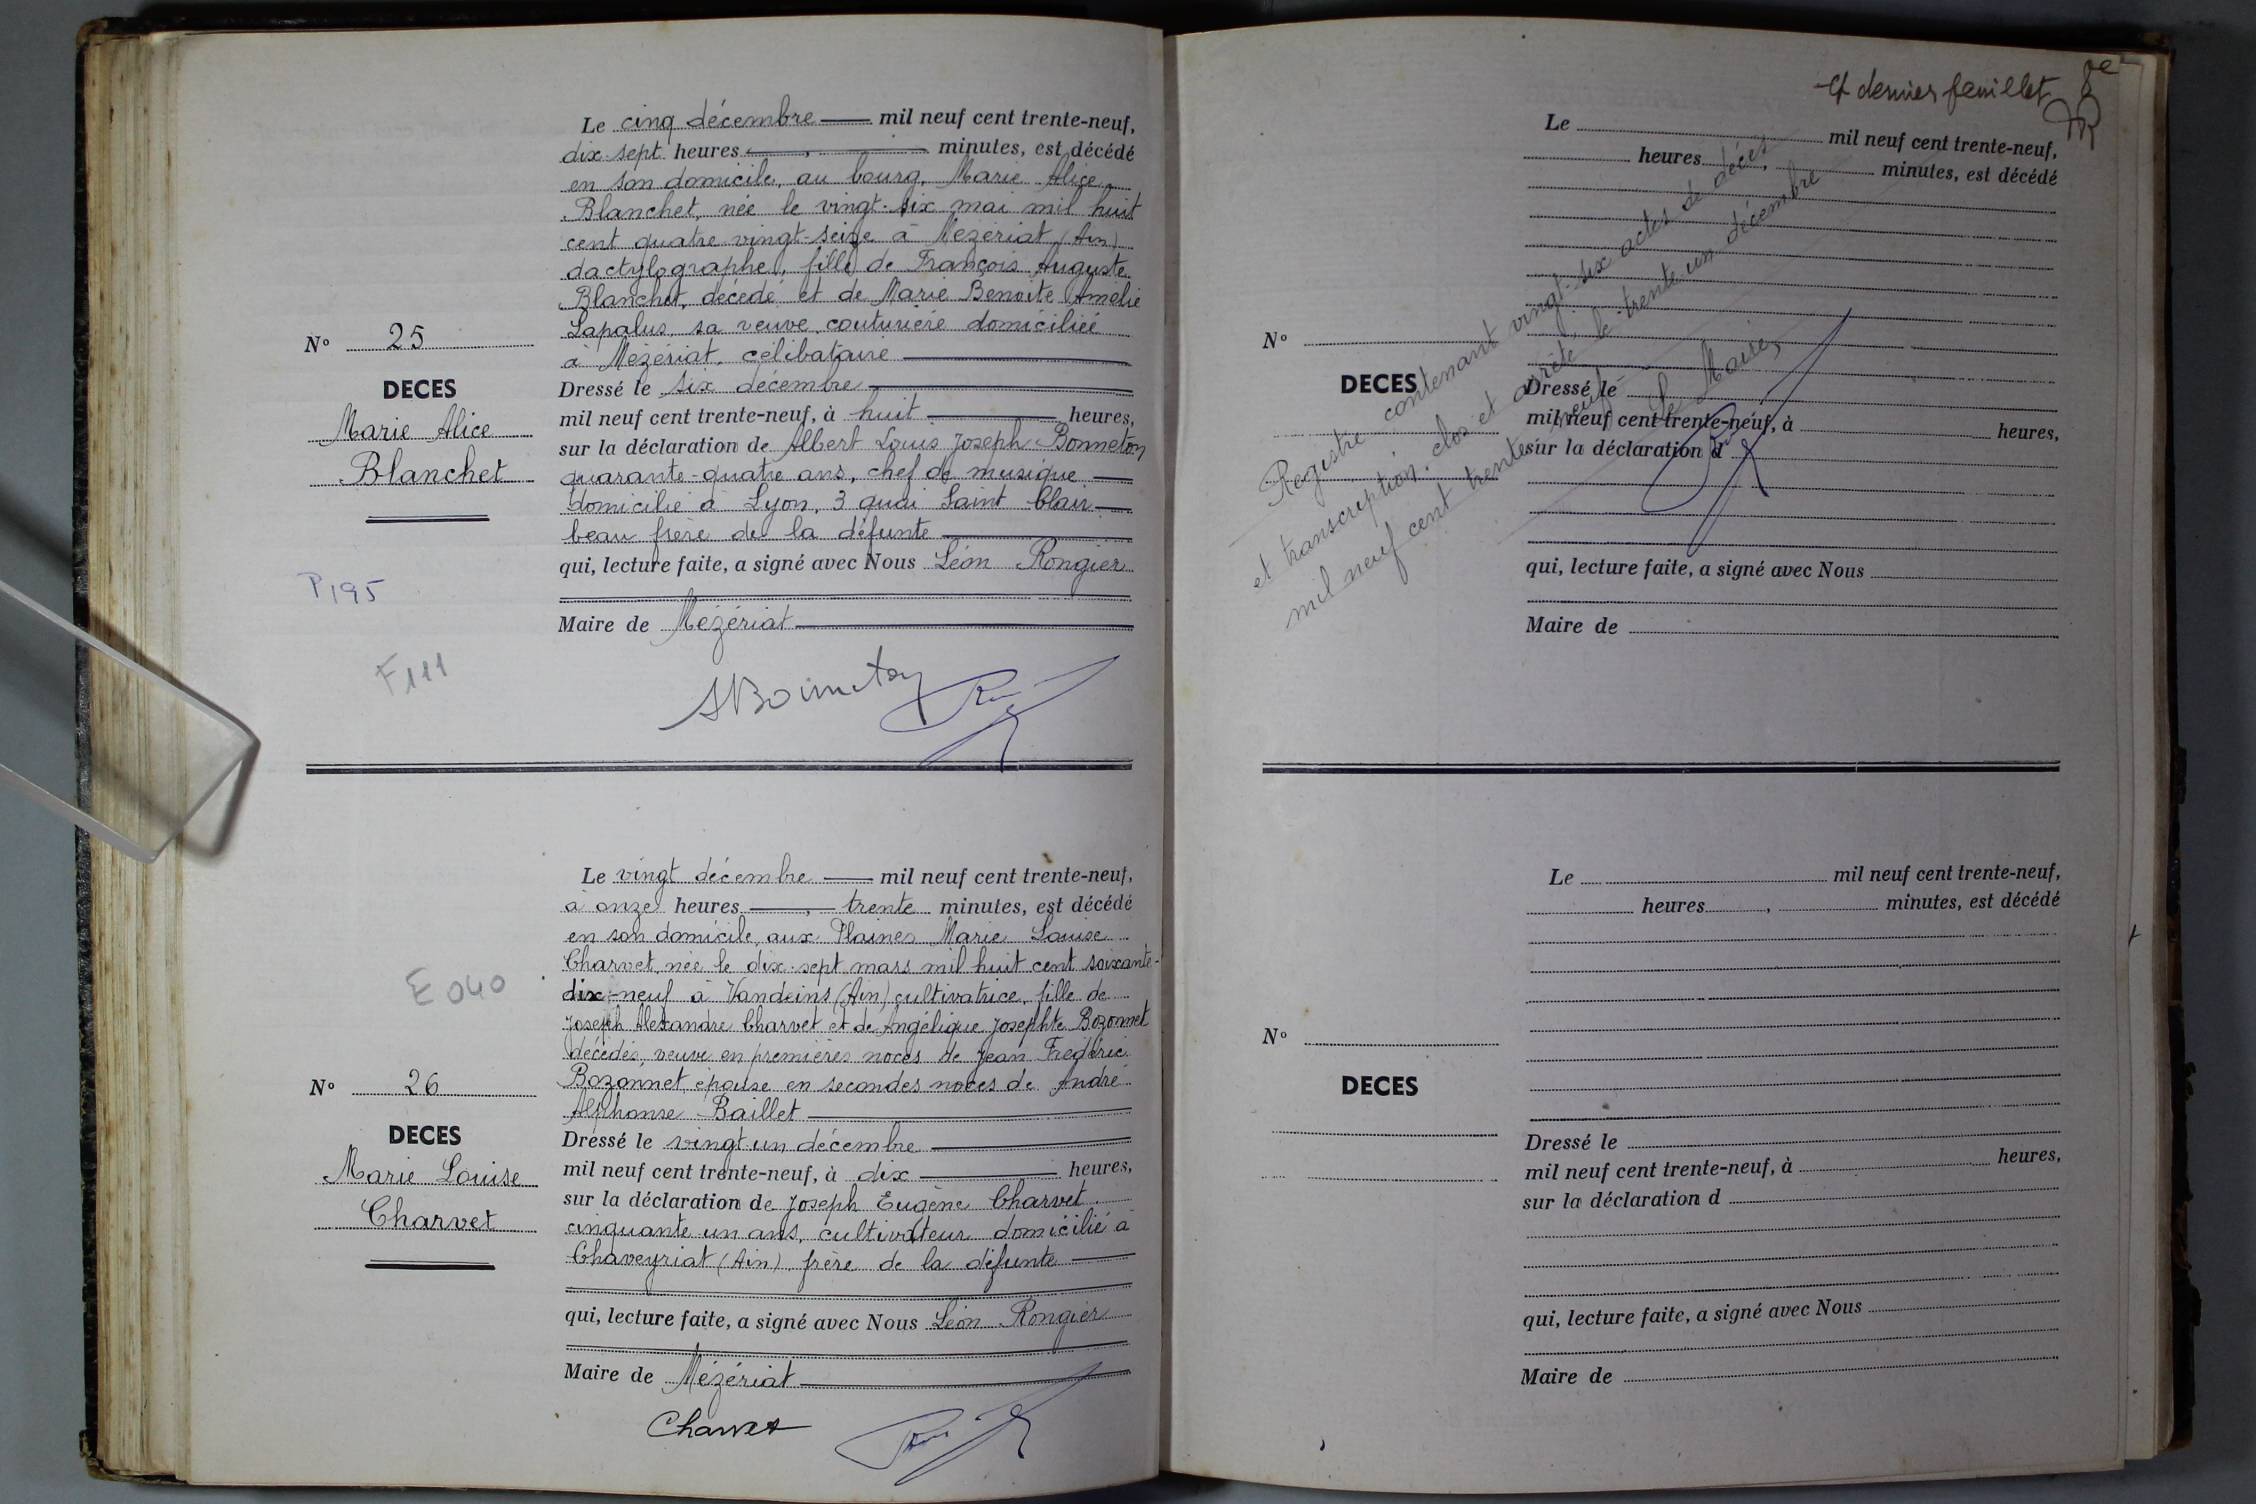 Le cinq décembre mil neuf cent trente-neuf,
dix-sept heures , minutes, est décédé
en son domicile, au bourg, Marie Alice
Blanchet, née le vingt-six mai mil huit
cent quatre vingt-seize à Mézériat (Ain)
dactylographe, fille de François Auguste
Blanchet, décédé et de Marie Benoite Amélie
Lapalus, sa veuve, couturière domiciliée
à Mézériat, célibataire
N° 25
DECES
Marie Alice
Blanchet
Dressé le six décembre
mil neuf cent trente-neuf, à huit heures,
sur la déclaration de Albert Louis Joseph Bonneton
quarante-quatre ans, chef de musique
domicilié à Lyon, 3 quai Saint Clair
beau frère de la défunte
qui, lecture faite, a signé avec Nous Léon Rongier
Maire de Mézériat
P195
F111
ABonneton
Le vingt décembre mil neuf cent trente-neuf,
à onze heures , trente minutes, est décédé
en son domicile, aux Plaines Marie Louise
Charvet, née le dix-sept mars mil huit cent soixante-
dix-neuf à Vandeins (Ain) cultivatrice, fille de
Joseph Alexandre Charvet et de Angélique Josephte Bozonnet
décédés, veuve en premières noces de Jean Frédéric
Bozonnet, épouse en secondes noces de André
Alphonse Baillet
E040
N° 26
DECES
Marie Louise
Charvet
Dressé le vingt-un décembre
mil neuf cent trente-neuf, à dix heures,
sur la déclaration de Joseph Eugène Charvet
cinquante un ans, cultivateur domicilié à
Chaveyriat (Ain) frère de la défunte
qui, lecture faite, a signé avec Nous Léon Rongier
Maire de Mézériat
Charvet
et dernier feuillet
Le mil neuf cent trente-neuf,
heures , minutes, est décédé
N°
DECES
Dressé le
mil neuf cent trente-neuf, à heures,
sur la déclaration d
qui, lecture faite, a signé avec Nous
Maire de
Registre contenant vingt-six actes de décès
et transcription, clos et arrêté le trente-un décembre
mil neuf cent trente neuf
Le Maire,
Le mil neuf cent trente-neuf,
heures , minutes, est décédé
N°
DECES
Dressé le
mil neuf cent trente-neuf, à heures,
sur la déclaration d
qui, lecture faite, a signé avec Nous
Maire de